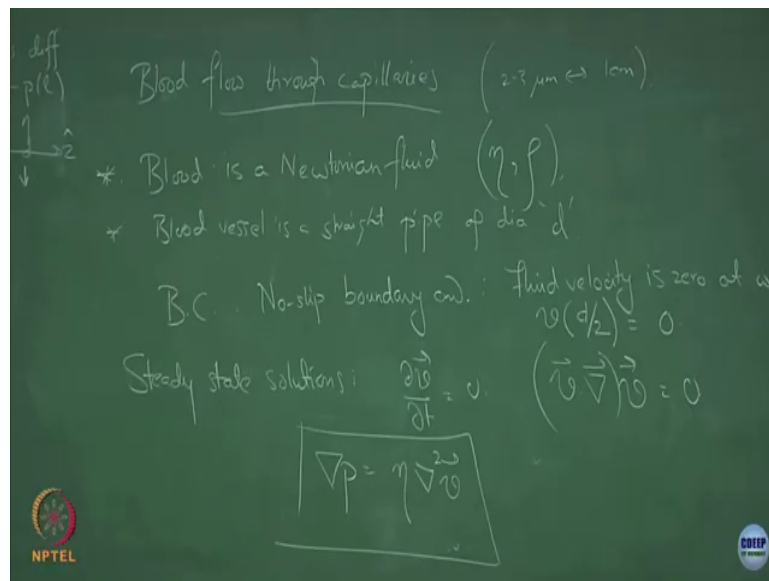 diff
p(l)
ẑ
Blood flow through capillaries (2-3 μm ↔ 1cm)
* Blood is a Newtonian fluid (η, ρ),
* Blood vessel is a straight pipe of dia 'd'
B.C. No-slip boundary con. : fluid velocity is zero at
v(d/2) = 0.
Steady state solutions: ∂v⃗/∂t = 0. (v⃗.∇⃗)v⃗ = 0
∇p = η∇²v⃗
NPTEL
CDEEP
IIT BOMBAY